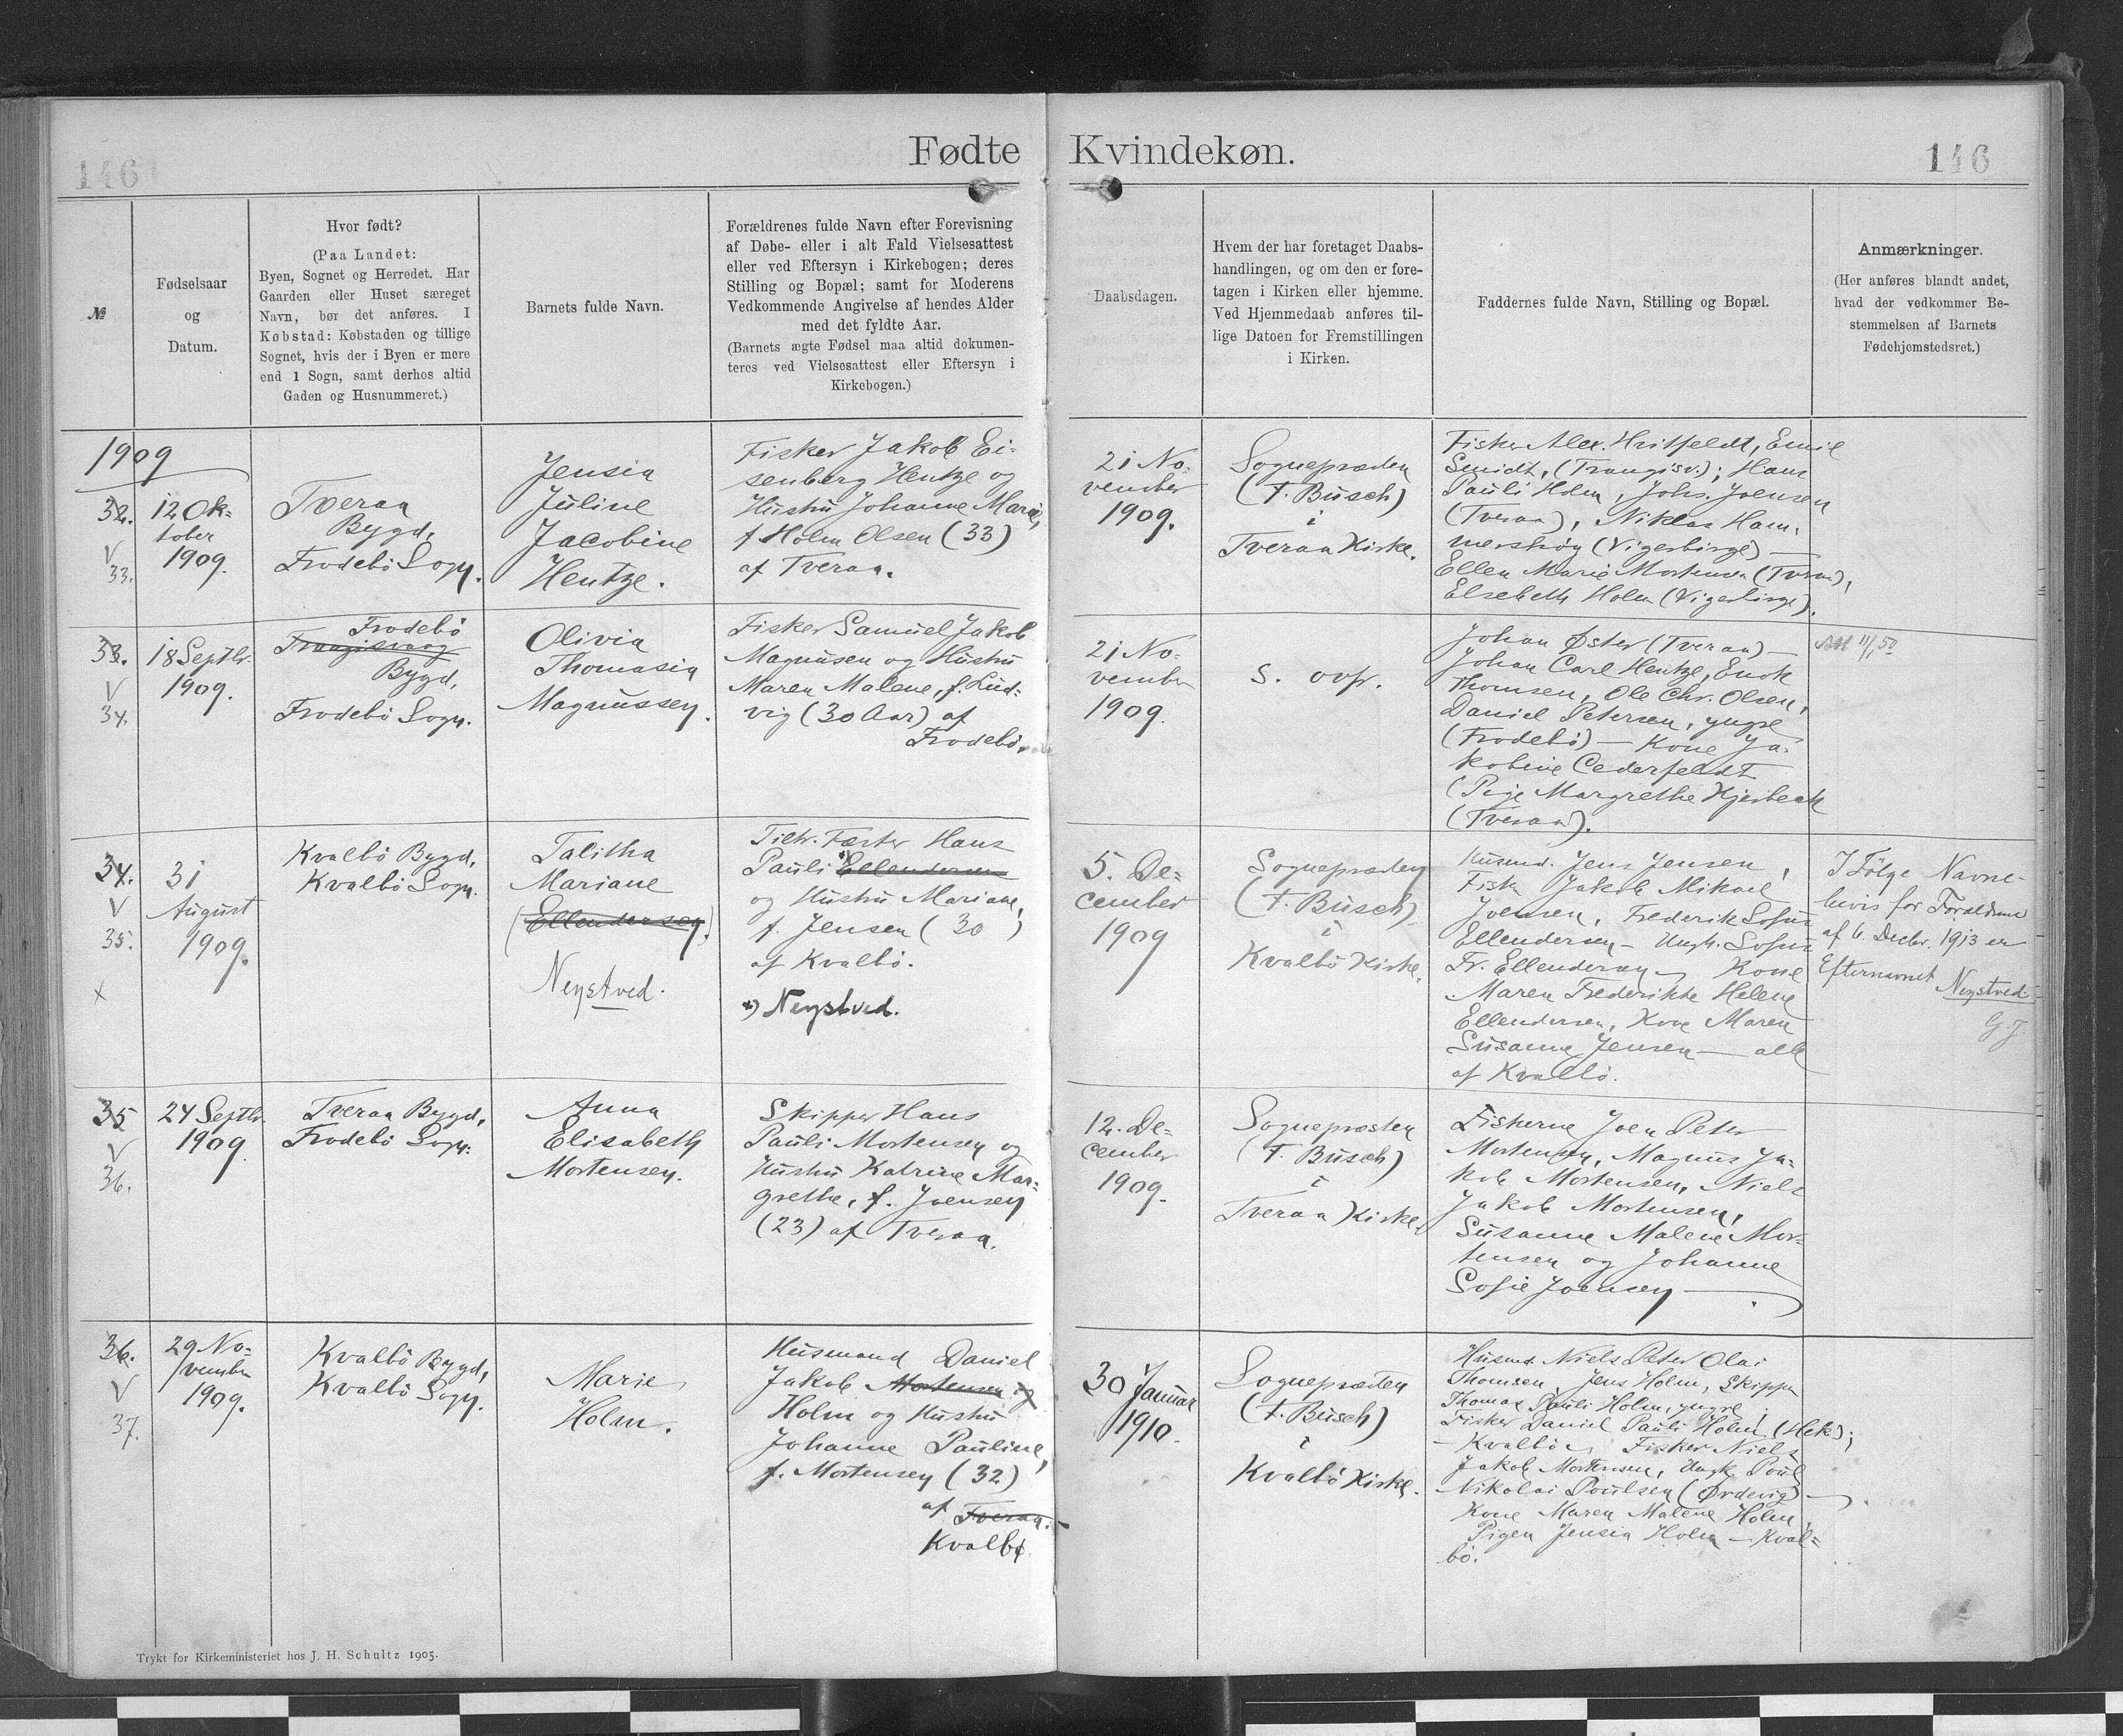 Fødte Kvindekøn.
146
146
№
Fødselsaar
og
Datum.
Hvor født?
(Paa Landet:
Byen, Sognet og Herredet. Har
Gaarden eller Huset særeget
Navn, bør det anføres. I
Købstad: Købstaden og tillige
Sognet, hvis der i Byen er mere
end 1 Sogn, samt derhos altid
Gaden og Husnummeret.)
Barnets fulde Navn.
Forældrenes fulde Navn efter Forevisning
af Døbe- eller i alt Fald Vielsesattest
eller ved Eftersyn i Kirkebogen; deres
Stilling og Bopæl; samt for Moderens
Vedkommende Angivelse af hendes Alder
med det fyldte Aar.
(Barnets ægte Fødsel maa altid dokumen-
teres ved Vielsesattest eller Eftersyn i
Kirkebogen.)
Daabsdagen.
Hvem der har foretaget Daabs-
handlingen, og om den er fore-
tagen i Kirken eller hjemme.
Ved Hjemmedaab anføres til-
lige Datoen for Fremstillingen
i Kirken.
Faddernes fulde Navn, Stilling og Bopæl.
Anmærkninger.
(Her anføres blandt andet,
hvad der vedkommer Be-
stemmelsen af Barnets
Fødehjemstedsret.)
1909
32.
V
33.
12 Ok-
tober
1909.
Tveraa
Bygd,
Frodebö Sogn.
Jensia
Juline
Jacobine
Hentze.
Fisker Jakob Ei-
senberg Hentze og
Hustru Johanne Marie,
f. Holm Olsen (33)
af Tveraa.
21 No-
vember
1909.
Sognepræsten
(F. Busch)
i
Tveraa Kirke.
Fisker Alex. Emil
Smidt, (Trangisv.); Hans
Pauli Holm, Johs. Joensen
(Tveraa), Niklas Ham-
mershöy (Vigerbirge) —
Ellen Marie Mortensen (Tveraa),
Elsebeth Holm (Vigerbirge).
33.
V
34.
18 Septbr.
1909.
Frodebö
Trangisvaag
Bygd,
Frodebö Sogn.
Olivia
Thomasia
Magnussen.
Fisker Samuel Jakob
Magnusen og Hustru
Maren Malene, f. Lud-
vig (30 Aar) af
Frodebö.
21 No-
vember
1909.
S. ovfr.
Johan Øster (Tveraa) —
Johan Carl Hentze, Enok
Thomsen, Ole Chr. Olsen,
Daniel Petersen, yngre
(Frodebö) — Kone Ja-
kobine Cederfeldt
(Pige Margrethe Hjerbeck
(Tveraa).
11/1 50
34.
V
35.
x
31
August
1909.
Kvalbö Bygd,
Kvalbö Sogn.
Talitha
Mariane
(Ellendersen)
Neystved.
Tiltr. Fæster Hans
Pauli *) Ellendersen
og Hustru Mariane,
f. Jensen (30)
af Kvalbö.
*) Neystved.
5. De-
cember
1909
Sognepræsten
(F. Busch)
i
Kvalbö Kirke.
Husmd. Jens Jensen,
Fisk. Jakob Mikael
Joensen, Frederik Sofus
Ellendersen — Ungk. Sofus
Fr. Ellendersen, Kone
Maren Frederikke Helene
Ellendersen, Kone Maren
Susanne Jensen — alle
af Kvalbö.
I Følge Navne-
bevis for Forældrene
af 6. Decbr. 1913 er
Efternavnet Neystved.
G. J.
35
V
36.
24 Septbr.
1909
Tveraa Bygd,
Frodebö Sogn.
Anna
Elisabeth
Mortensen.
Skipper Hans
Pauli Mortensen og
Hustru Katrine Mar-
grethe, f. Joensen
(23) af Tveraa.
12. De-
cember
1909.
Sognepræsten
(F. Busch)
i
Tveraa Kirke.
Fiskerne Joen Peter
Mortensen, Magnus Ja-
kob Mortensen, Niels
Jakob Mortensen,
Susanne Malene Mor-
tensen og Johanne
Sofie Joensen —
36.
V
37.
29 No-
vember
1909.
Kvalbö Bygd,
Kvalbö Sogn.
Marie
Holm.
Husmand Daniel
Jakob Mortensen og
Holm og Hustru
Johanne Pauline,
f. Mortensen (32)
af Tveraa.
Kvalbø.
30 Januar
1910.
Sognepræsten
(F. Busch)
i
Kvalbö Kirke.
Husmd. Niels Peter Olai
Thomsen, Jens Holm, Skipper
Thomas Pauli Holm, yngre;
Fisker Daniel Pauli Holm (Hek);
— Kvalbö, Fisker Niels
Jakob Mortensen, Ungk. Poul
Nikolai Poulsen (Ørdevig) —
Kone Maren Malene Holm,
Pigen Jensia Holm — Kval-
bö.
Trykt for Kirkeministeriet hos J. H. Schultz 1905.